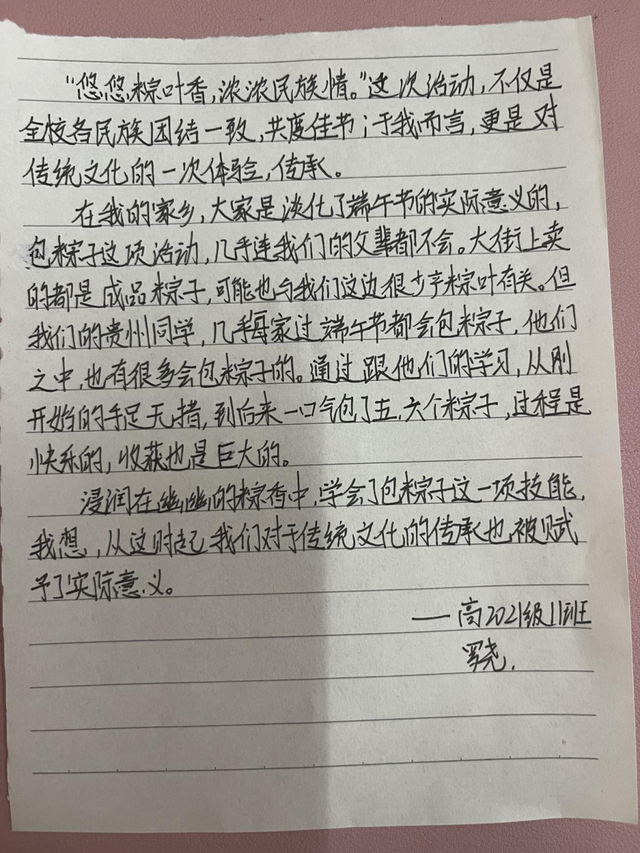 “悠悠粽叶香，浓浓民族情。”这次活动，不仅是
全校各民族团结一致，共度佳节；于我而言，更是对
传统文化的一次体验，传承。
在我的家乡，大家是淡化了端午节的实际意义的，
包粽子这项活动，几乎连我们的父辈都不会。大街上卖
的都是成品粽子，可能也与我们这边很少产粽叶有关。但
我们的贵州同学，几乎每家过端午节都会包粽子，他们
之中，也有很多会包粽子的。通过跟他们的学习，从刚
开始的手足无措，到后来一口气包了五、六个粽子，过程是
快乐的，收获也是巨大的。
浸润在幽幽的粽香中，学会了包粽子这一项技能，
我想，从这时起我们对于传统文化的传承也被赋
予了实际意义。
——高2021级11班